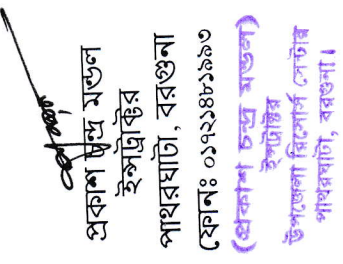 প্রকাশ চন্দ্র মণ্ডল
ইন্সট্রাক্টর
পাথরঘাটা, বরগুনা
ফোনঃ ০১৭২১৪৮১৯৯৩
(প্রকাশ চন্দ্র মন্ডল)
ইন্সট্রাক্টর
উপজেলা রিসোর্স সেন্টার
পাথরঘাটা, বরগুনা।